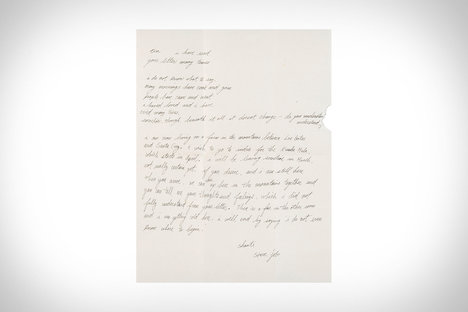 tim i have read
your letter many times
i do not know what to say.
many mornings have come and gone
people have came and went
i have loved and i have
cried many times.
somehow though beneath it all it doesnt change - do you understand
understand?
i am now living on a farm in the mountains between Los Gatos
and Santa Cruz. i wish to go to india for the Kumba Mela,
which starts in April. i will be leaving sometime in March,
not really certain yet. if you desire, and i am still here
when you come, we can be here in the mountains together and
you can tell me your thoughts and feelings which i did not
fully understand from your letter. There is a fire in the other room
and i am getting cold here. i will end by saying i do not even
know where to begin.
shanti
steve jobs